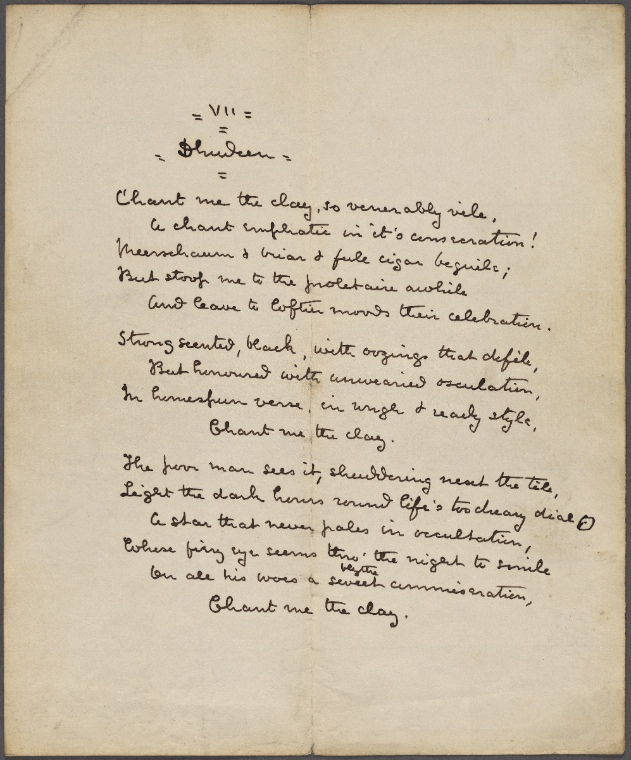 = VII =
=
= Dhudeen =
=
Chant me the clay, so venerably vile,
A chant emphatic in it's consecration!
Meerschaum & briar & fule cigar beguile;
But stoop me to the proletaire awhile
And leave to loftier moods their celebration.
Strong scented, black, with oozings that defile,
But honoured with unwearied osculation,
In homespun verse, in rough & ready style,
Chant me the clay.
The poor man sees it, shuddering neath the tile,
Light the dark hours round life's too dreary dial
A star that never pales in occultation,
Whose fiery eye seems thro' the night to smile
blythe
On all his woes a sweet commiseration,
Chant me the clay.